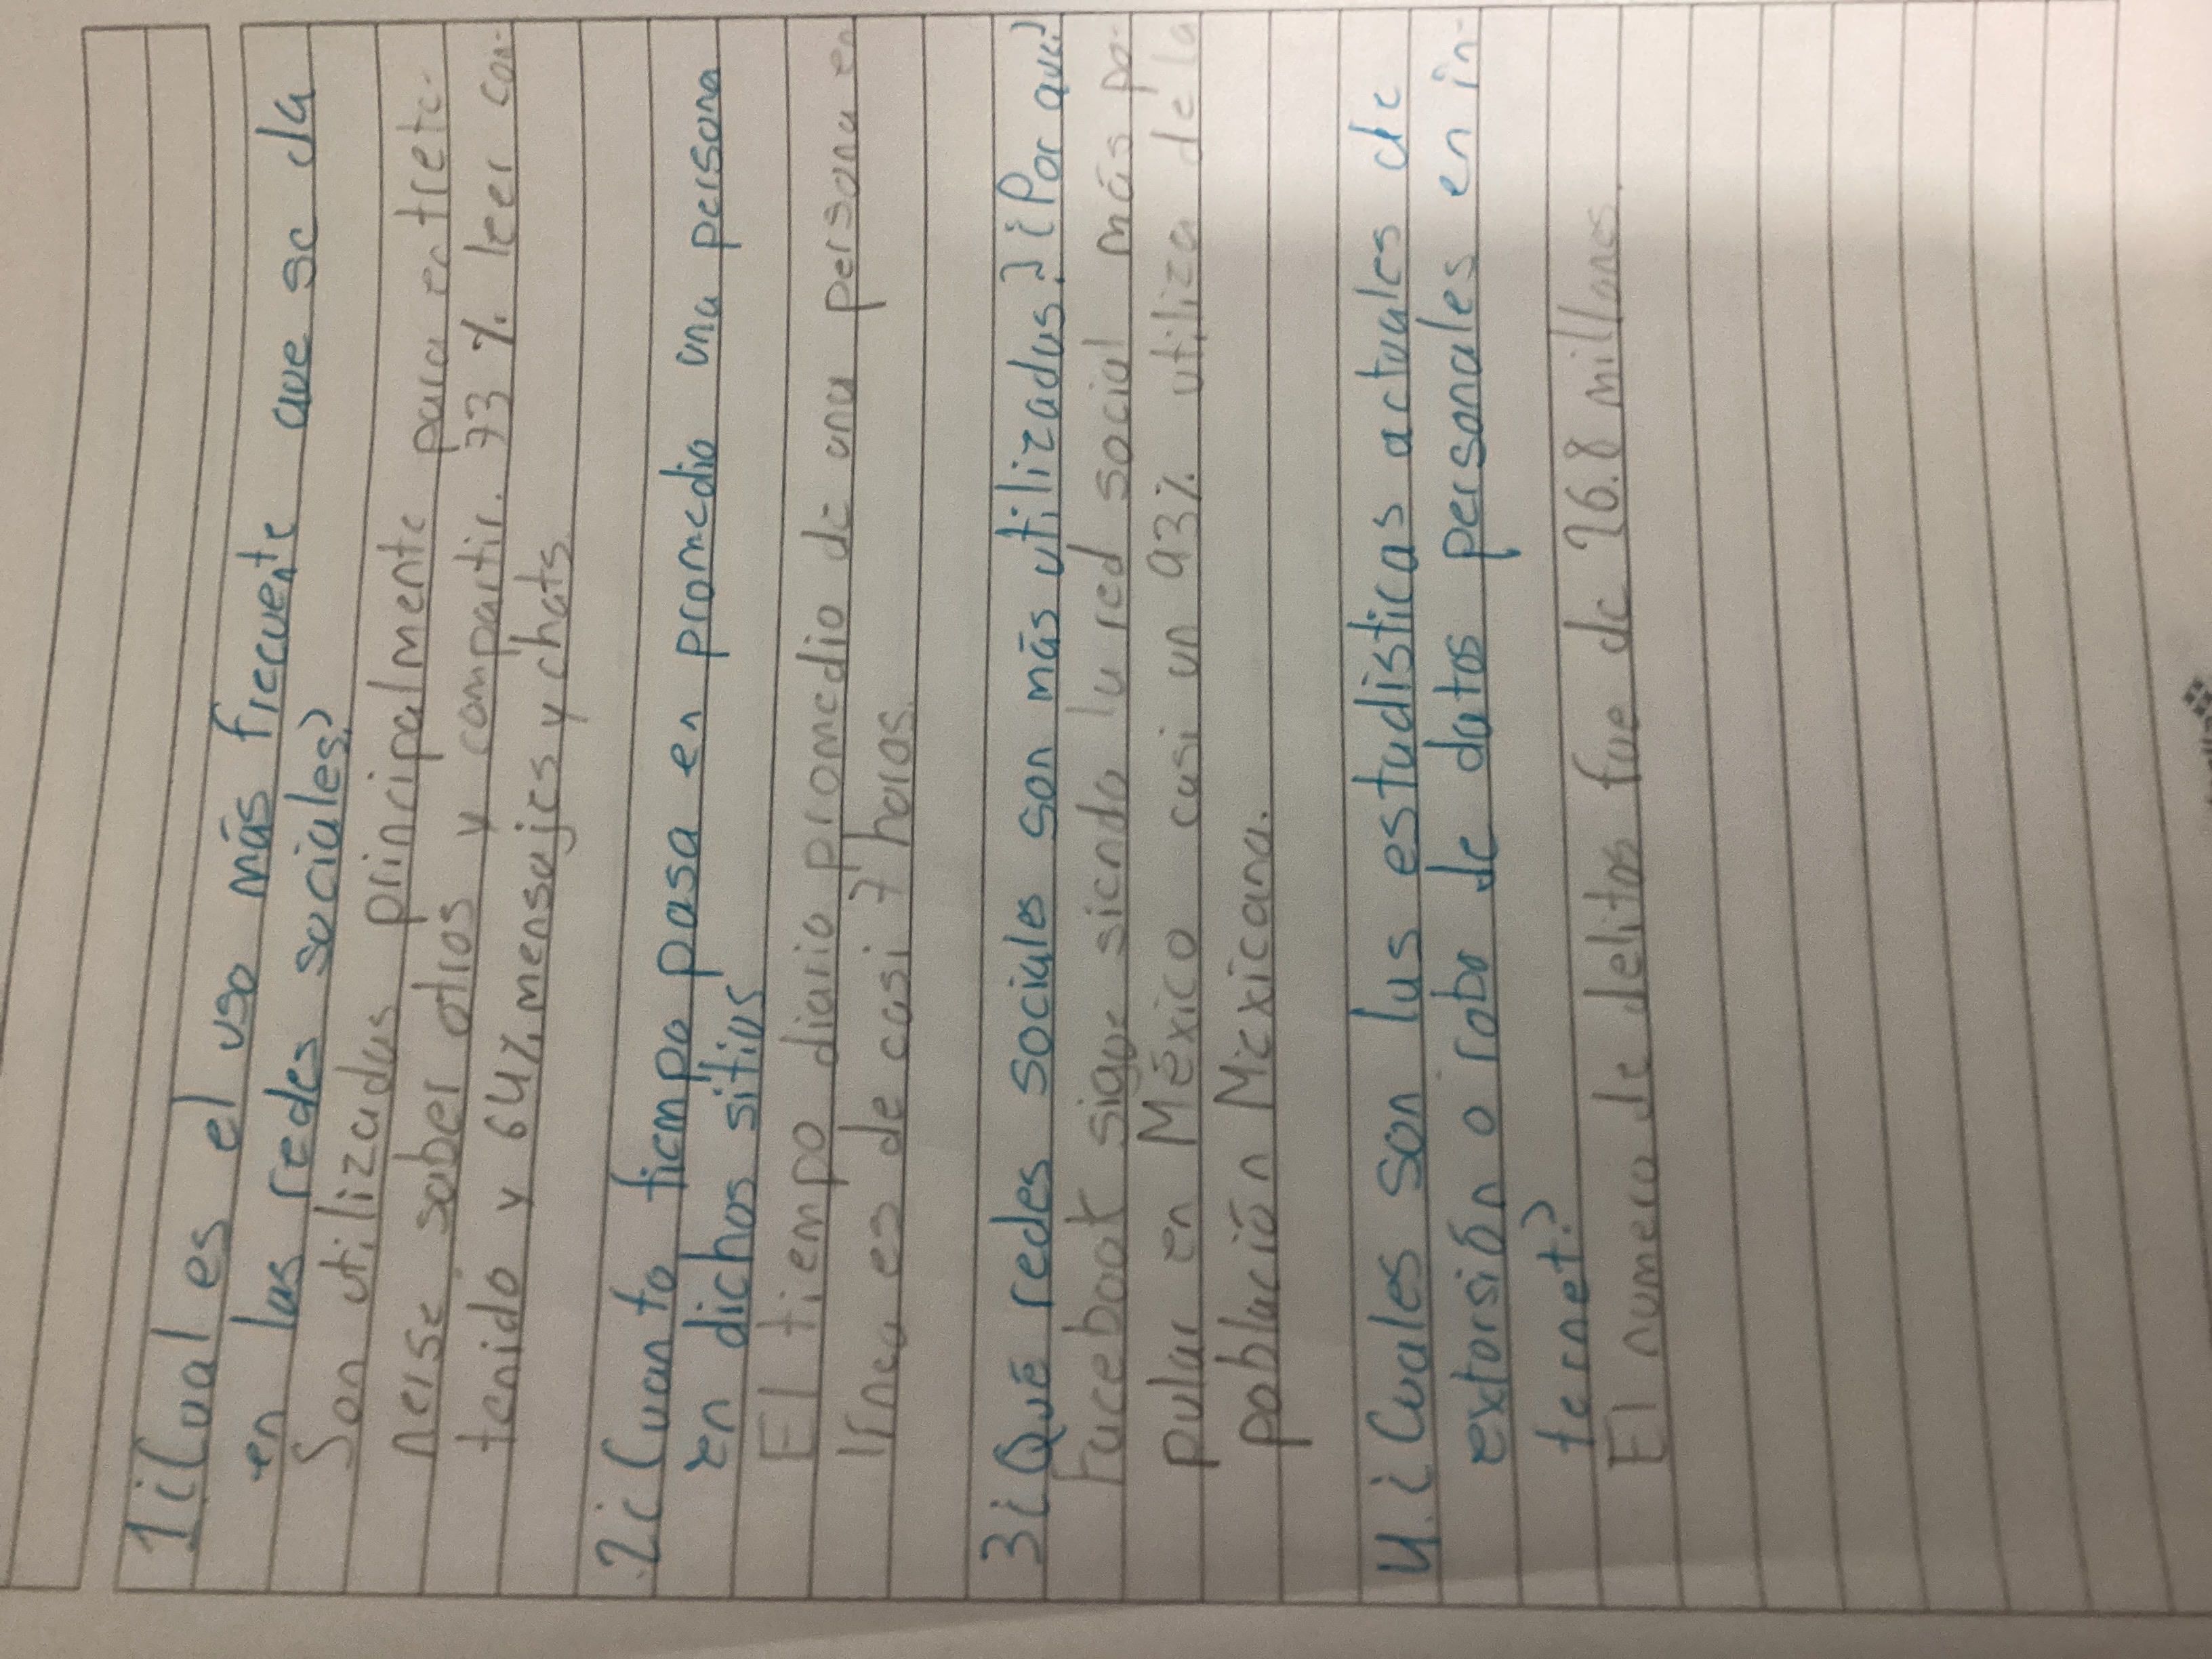 1 ¿Cual es el uso más frecuente que se da
en las redes sociales?
Son utilizadas principalmente para entrete-
nerse saber otros y compartir. 73 % leer con-
tenido y 64% mensajes y chats.
2 ¿Cuanto tiempo pasa en promedio una persona
en dichos sitios
El tiempo diario promedio de una persona en
línea es de casi 7 horas.
3 ¿Qué redes sociales son más utilizadas? ¿Por qué?
Facebook sigue siendo la red social más po-
pular en México casi un 93% utiliza de la
población Mexicana.
4. ¿Cuales son las estadisticas actuales de
extorsión o robo de datos personales en in-
ternet?
El numero de delitos fue de 26.8 millones.